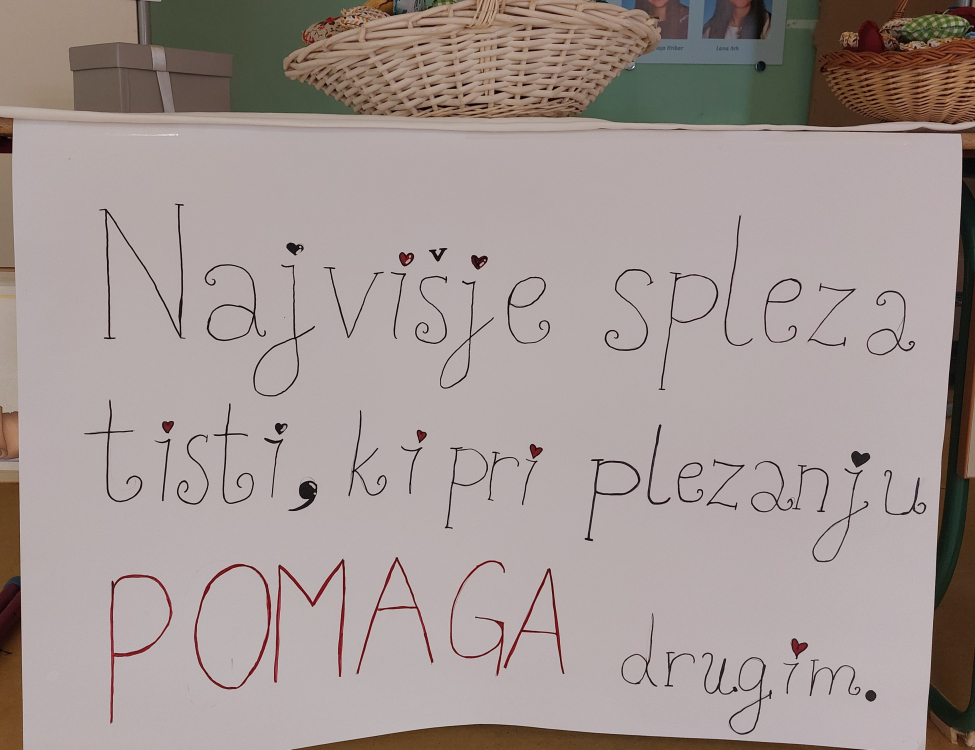 Lana Arh
Najvišje spleza
tisti, ki pri plezanju
POMAGA drugim.